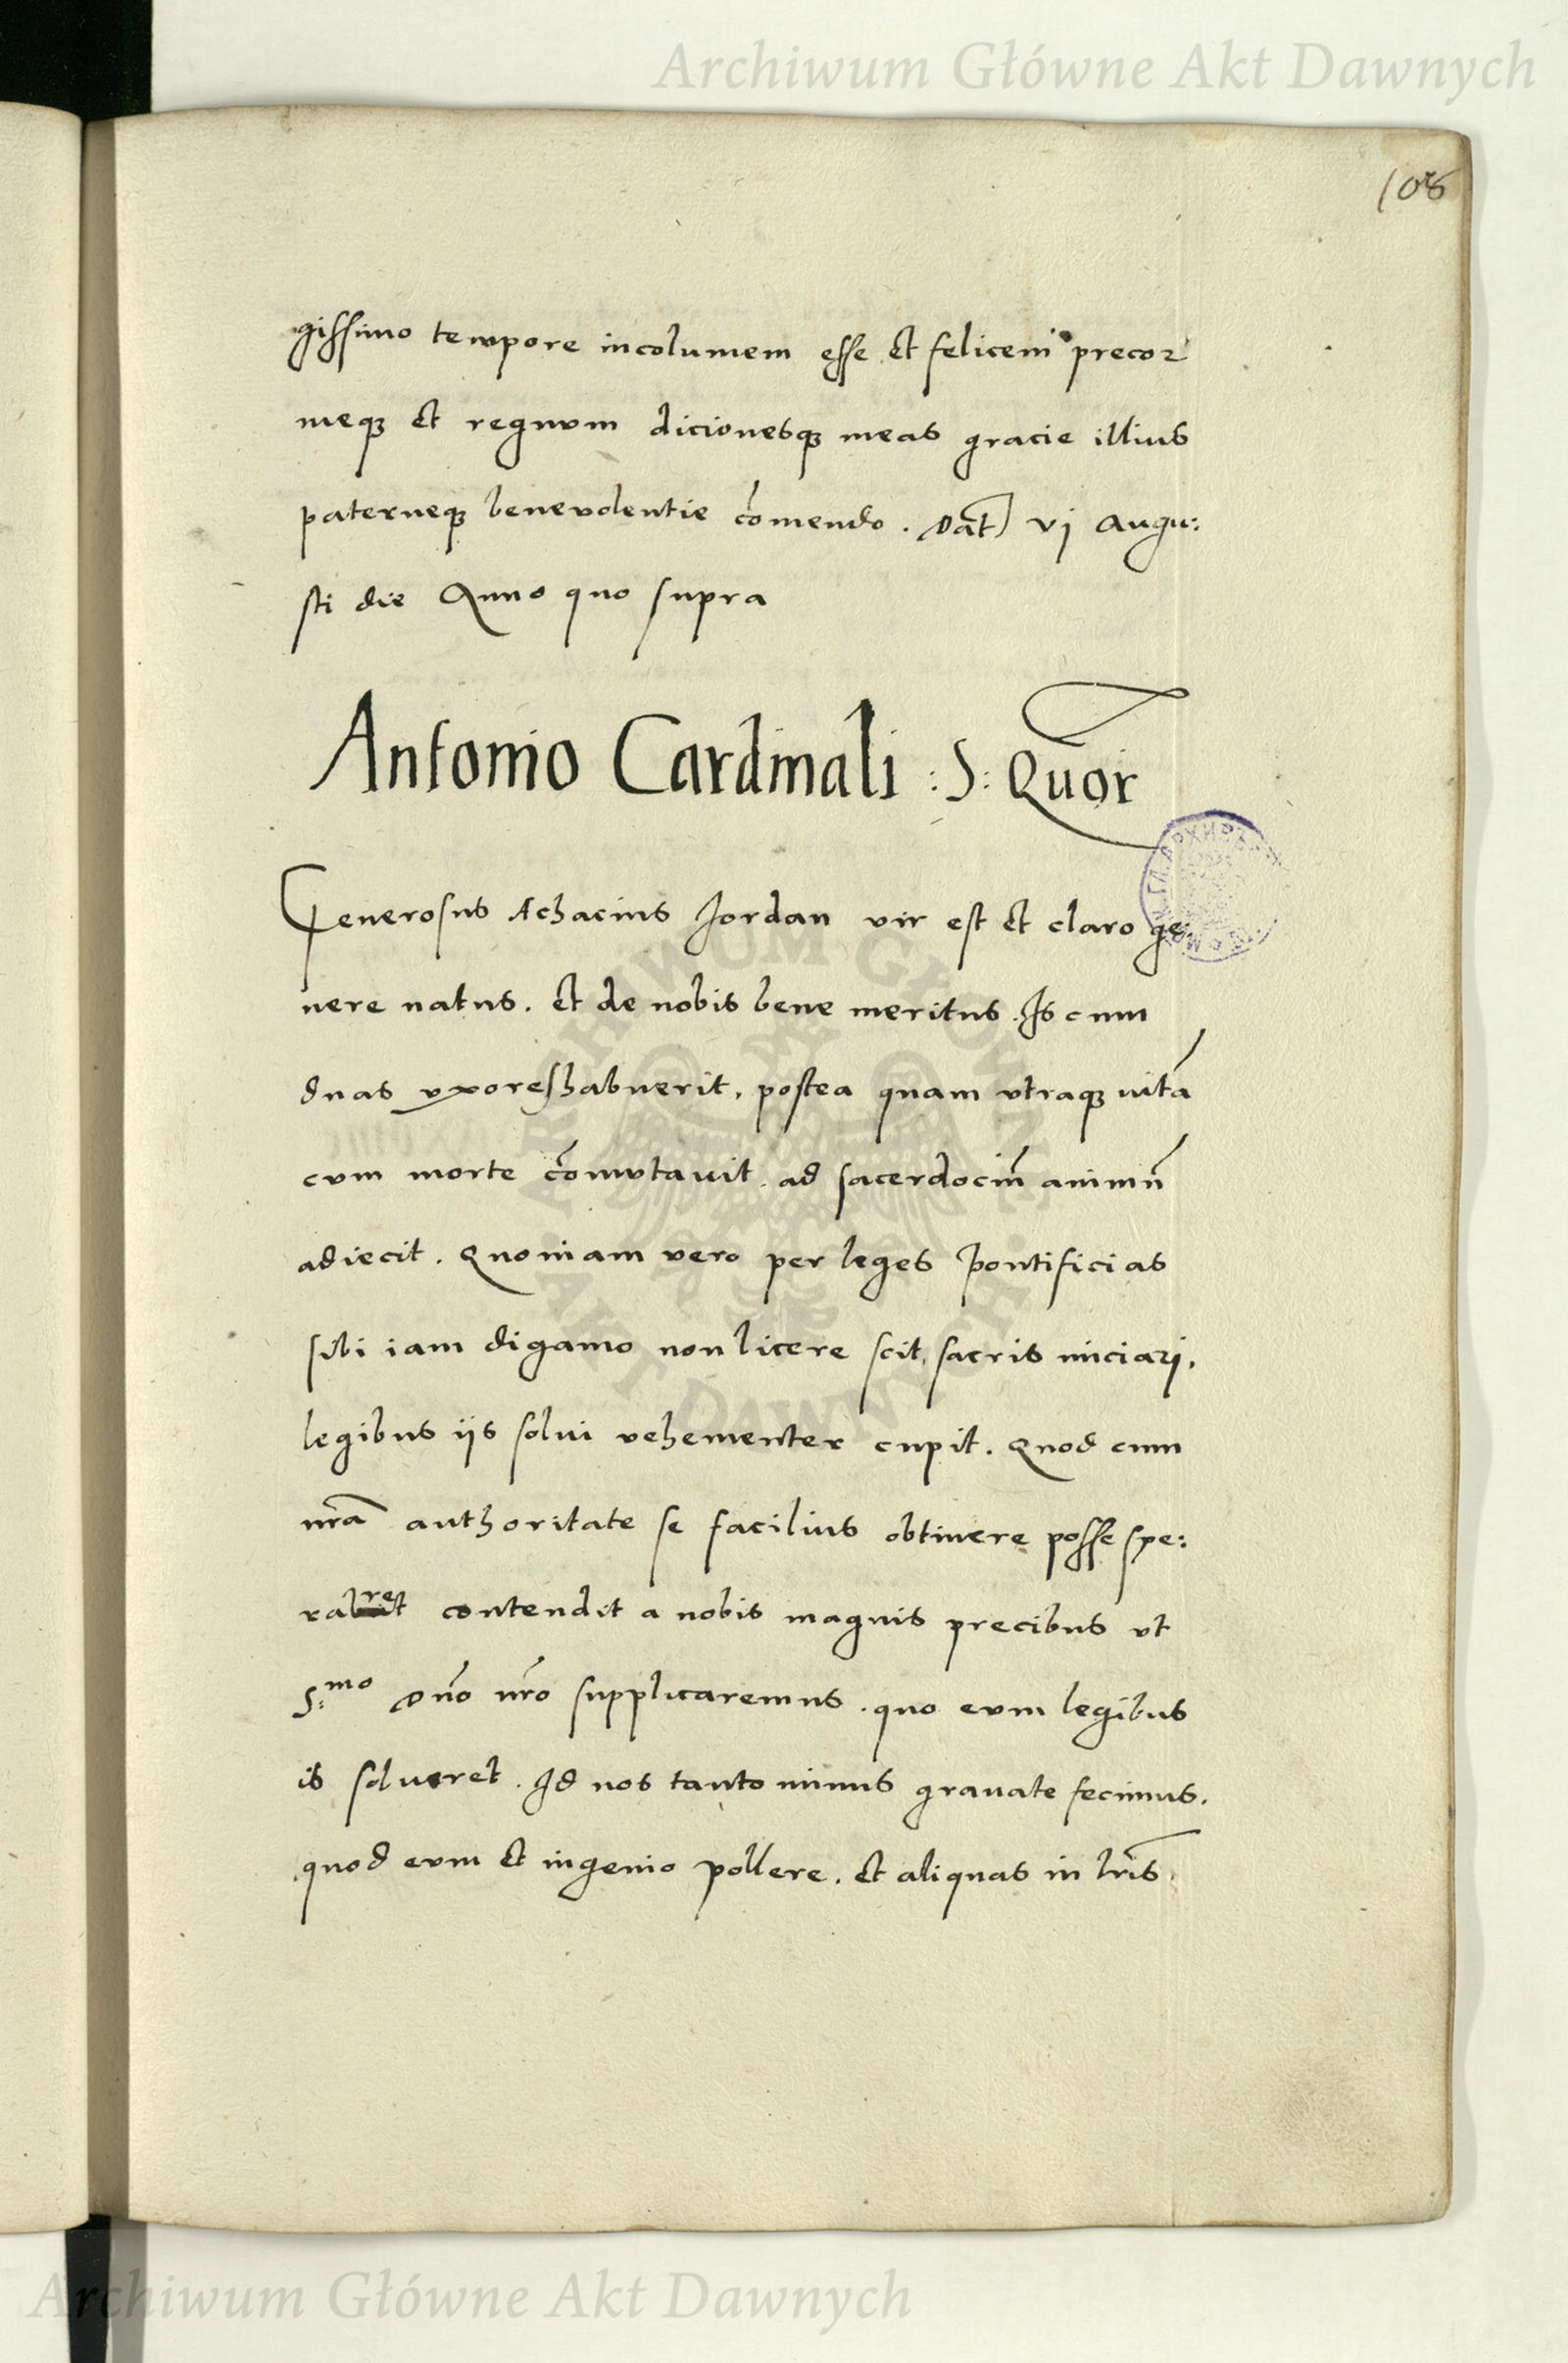 Archiwum Główne Akt Dawnych
108
gissimo tempore incolumem esse et felicem precor
meq3 et regnvm dicionesq3 meas gracie illius
paterneq3 benevolentie cōmendo . Dat̄ vj Augu:
sti die Anno quo supra
Antonio Cardinali : S : Quor
Generosus Achacius Jordan vir est et claro ge:
nere natus . et de nobis bene meritus . Is cum
duas vxores habuerit , postea quam vtraq3 uitā
cvm morte cōmvtauit . ad sacerdociū̄ animū
adiecit . Quoniam vero per leges pontificias
sibi iam digamo non licere scit , sacris iniciarj ,
legibus ijs solui vehementer cupit . Quod cum
nrā authoritate se facilius obtinere posse spe:
raret contendit a nobis magnis precibus vt
S:mo Dn̄o nr̄o supplicaremus . quo evm legibus
is solveret . Id nos tanto minus grauate fecimus .
quod evm et ingenio pollere . et aliquas in lr̄is
ARCHIWUM GŁÓWNE
AKT DAWNYCH
Archiwum Główne Akt Dawnych